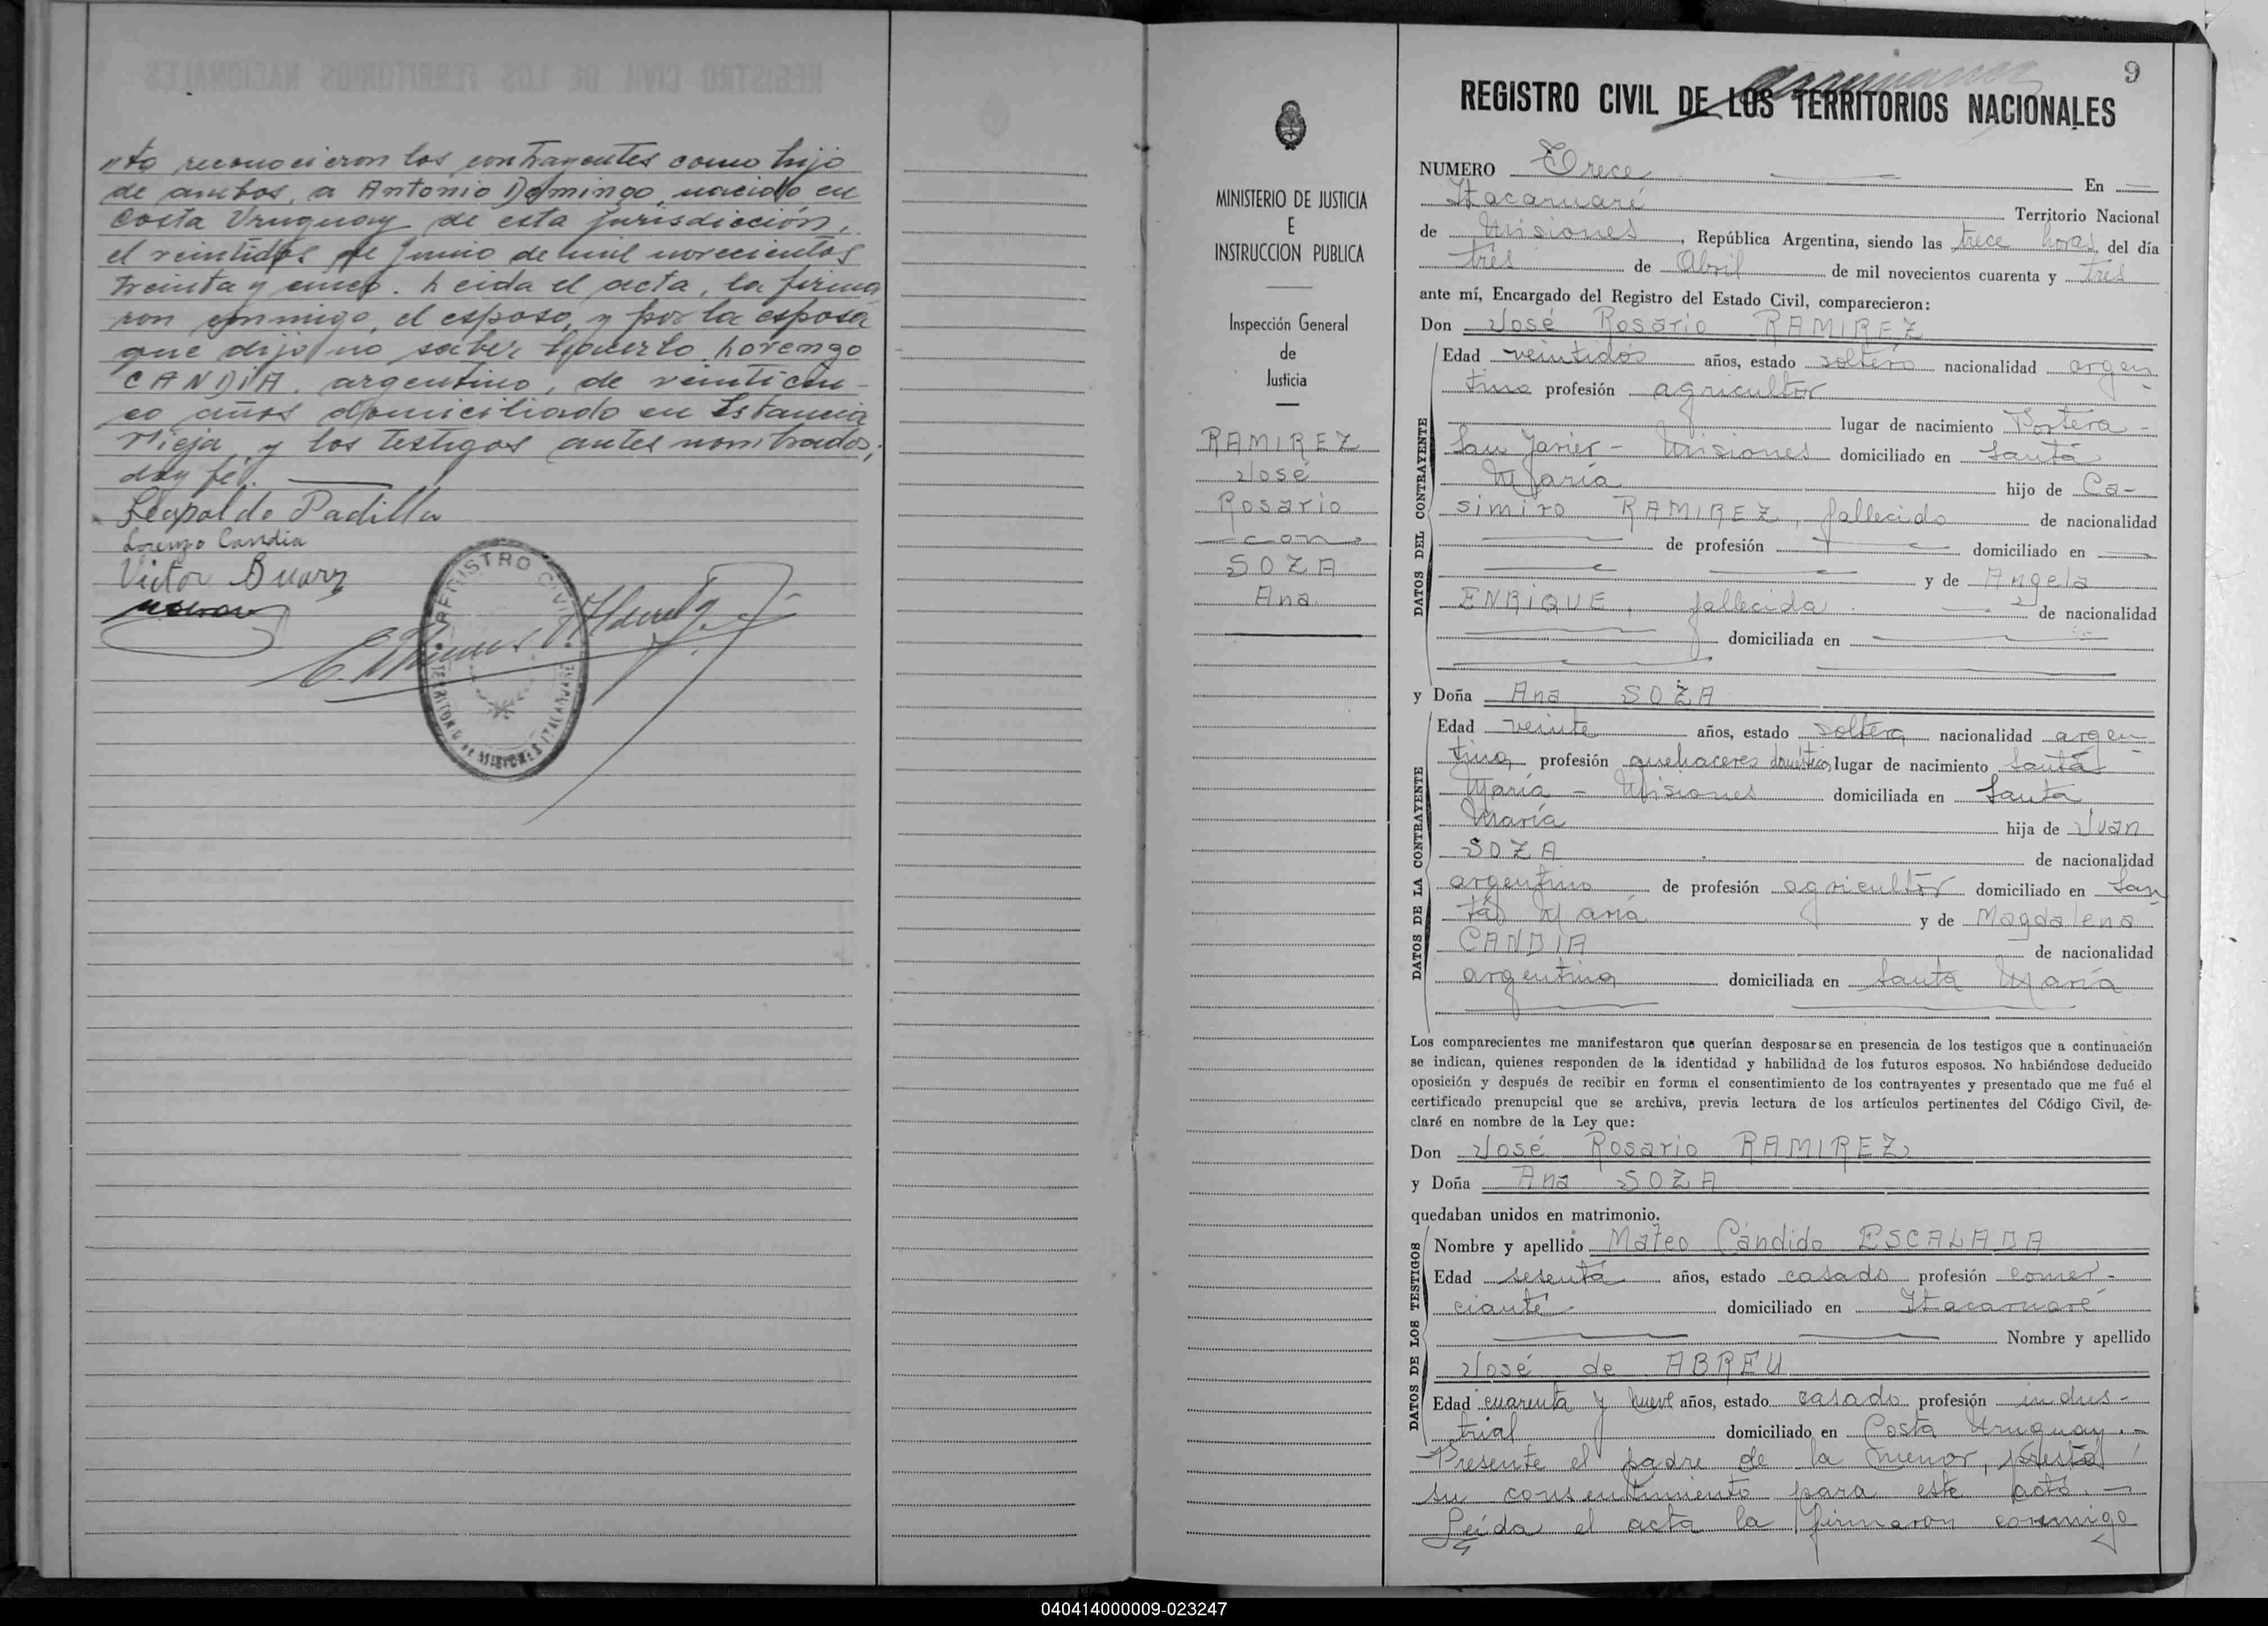 "to reconocieron los contrayentes como hijo
de ambos, a Antonio Domingo, nacido en
Costa Uruguay de esta jurisdicción,
el veintidos de Junio de mil novecientos
treinta y cinco. Leida el acta, la firma
ron conmigo, el esposo, y por la esposa
que dijo no saber hacerlo Lorenzo
CANDIA, argentino, de veinticin-
co años domiciliado en Estancia
Vieja, y los testigos antes nombrados;
doy fé.
Leopoldo Padilla
Lorenzo Candia
Victor Duarz
REGISTRO CIVIL
TERRITORIO DE MISIONES
MINISTERIO DE JUSTICIA
E
INSTRUCCION PUBLICA
Inspección General
de
Justicia
RAMIREZ
José
Rosario
con
SOZA
Ana
9
REGISTRO CIVIL DE LOS TERRITORIOS NACIONALES
NUMERO Trece En
Itacaruaré Territorio Nacional
de Misiones, República Argentina, siendo las trece horas del día
tres de Abril de mil novecientos cuarenta y tres
ante mí, Encargado del Registro del Estado Civil, comparecieron:
Don José Rosario RAMIREZ
DATOS DEL CONTRAYENTE
Edad veintidós años, estado soltero nacionalidad argen
tino profesión agricultor
lugar de nacimiento Portera-
San Javier - Misiones domiciliado en Santa
María hijo de Ca-
simiro RAMIREZ, fallecido de nacionalidad
de profesión domiciliado en
y de Angela
ENRIQUE, fallecida de nacionalidad
domiciliada en
y Doña Ana SOZA
DATOS DE LA CONTRAYENTE
Edad veinte años, estado soltera nacionalidad argen-
tina profesión quehaceres domésticos lugar de nacimiento Santa
María - Misiones domiciliada en Santa
María hija de Juan
SOZA de nacionalidad
argentino de profesión agricultor domiciliado en San
ta María y de Magdalena
CANDIA de nacionalidad
argentina domiciliada en Santa María
Los comparecientes me manifestaron que querían desposarse en presencia de los testigos que a continuación
se indican, quienes responden de la identidad y habilidad de los futuros esposos. No habiéndose deducido
oposición y después de recibir en forma el consentimiento de los contrayentes y presentado que me fué el
certificado prenupcial que se archiva, previa lectura de los artículos pertinentes del Código Civil, de-
claré en nombre de la Ley que:
Don José Rosario RAMIREZ
y Doña Ana SOZA
quedaban unidos en matrimonio.
DATOS DE LOS TESTIGOS
Nombre y apellido Mateo Cándido ESCALADA
Edad sesenta años, estado casado profesión comer-
ciante domiciliado en Itacaruaré
Nombre y apellido
José de ABREU
Edad cuarenta y nueve años, estado casado profesión indus-
trial domiciliado en Costa Uruguay.-
Presente el padre de la menor, presta
su consentimiento para este acto.-
Leída el acta la firmaron conmigo
040414000009-023247